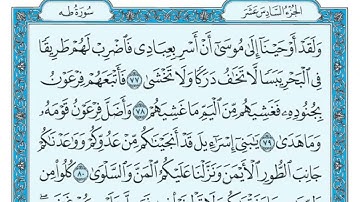 سُورَةُ طه الجُزْءُ السَّادِسَ عَشَرَ
وَلَقَدْ أَوْحَيْنَآ إِلَىٰ مُوسَىٰٓ أَنْ أَسْرِ بِعِبَادِى فَٱضْرِبْ لَهُمْ طَرِيقًا
فِى ٱلْبَحْرِ يَبَسًا لَّا تَخَٰفُ دَرَكًا وَلَا تَخْشَىٰ ٧٧ فَأَتْبَعَهُمْ فِرْعَوْنُ
بِجُنُودِهِۦ فَغَشِيَهُم مِّنَ ٱلْيَمِّ مَا غَشِيَهُمْ ٧٨ وَأَضَلَّ فِرْعَوْنُ قَوْمَهُۥ
وَمَا هَدَىٰ ٧٩ يَٰبَنِىٓ إِسْرَٰٓءِيلَ قَدْ أَنجَيْنَٰكُم مِّنْ عَدُوِّكُمْ وَوَٰعَدْنَٰكُمْ
جَانِبَ ٱلطُّورِ ٱلْأَيْمَنَ وَنَزَّلْنَا عَلَيْكُمُ ٱلْمَنَّ وَٱلسَّلْوَىٰ ٨٠ كُلُوا۟ مِن